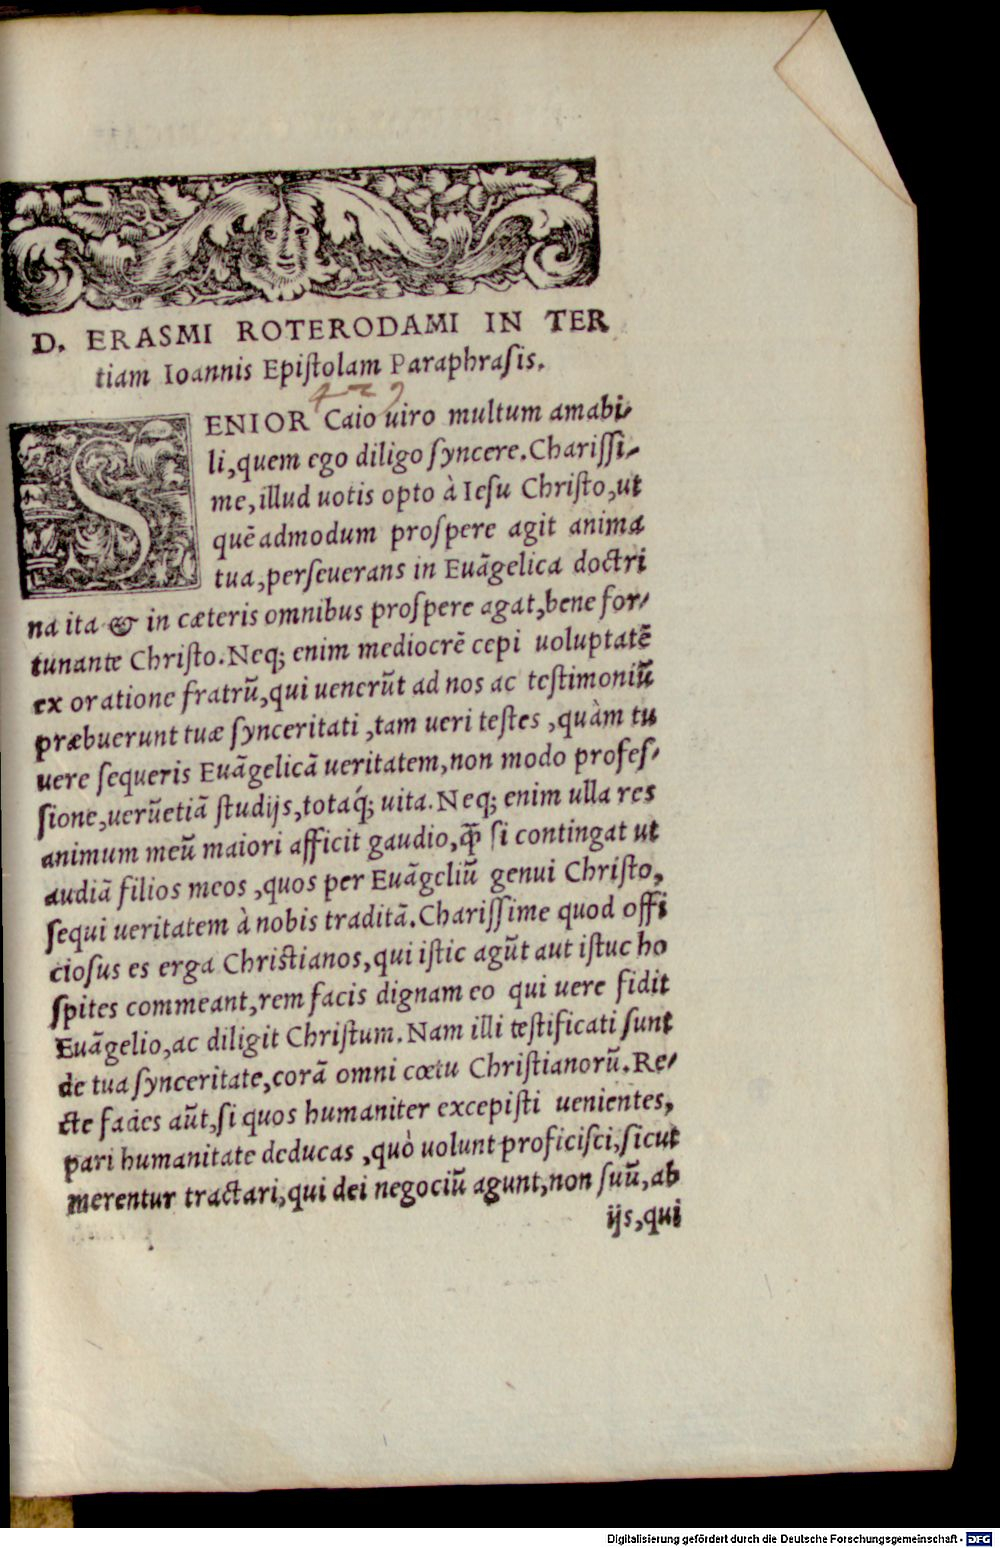 D. ERASMI ROTERODAMI IN TER
tiam Ioannis Epiſtolam Paraphraſis.
SENIOR Caio uiro multum amabi-
li, quem ego diligo ſyncere. Chariſſi-
me, illud uotis opto à Ieſu Chriſto, ut
quẽadmodum proſpere agit anima
tua, perſeuerans in Euãgelica doctri
na ita & in cæteris omnibus proſpere agat, bene for-
tunante Chriſto. Neq; enim mediocrẽ cepi uoluptatẽ
ex oratione fratrũ, qui uenerũt ad nos ac teſtimoniũ
præbuerunt tuæ ſynceritati, tam ueri teſtes, quàm tu
uere ſequeris Euãgelicã ueritatem, non modo profeſ-
ſione, uerũetiã ſtudijs, totaq́; uita. Neq; enim ulla res
animum meũ maiori afficit gaudio, q̃ ſi contingat ut
audiã filios meos, quos per Euãgeliũ genui Chriſto,
ſequi ueritatem à nobis traditã. Chariſſime quod offi
cioſus es erga Chriſtianos, qui iſtic agũt aut iſtuc ho
ſpites commeant, rem facis dignam eo qui uere fidit
Euãgelio, ac diligit Chriſtum. Nam illi teſtificati ſunt
de tua ſynceritate, corã omni cœtu Chriſtianorũ. Re-
cte facies aũt, ſi quos humaniter excepiſti uenientes,
pari humanitate deducas, quò uolunt proficiſci, ſicut
merentur tractari, qui dei negociũ agunt, non ſuũ, ab
ijs, qui
Digitalisierung gefördert durch die Deutsche Forschungsgemeinschaft - DFG